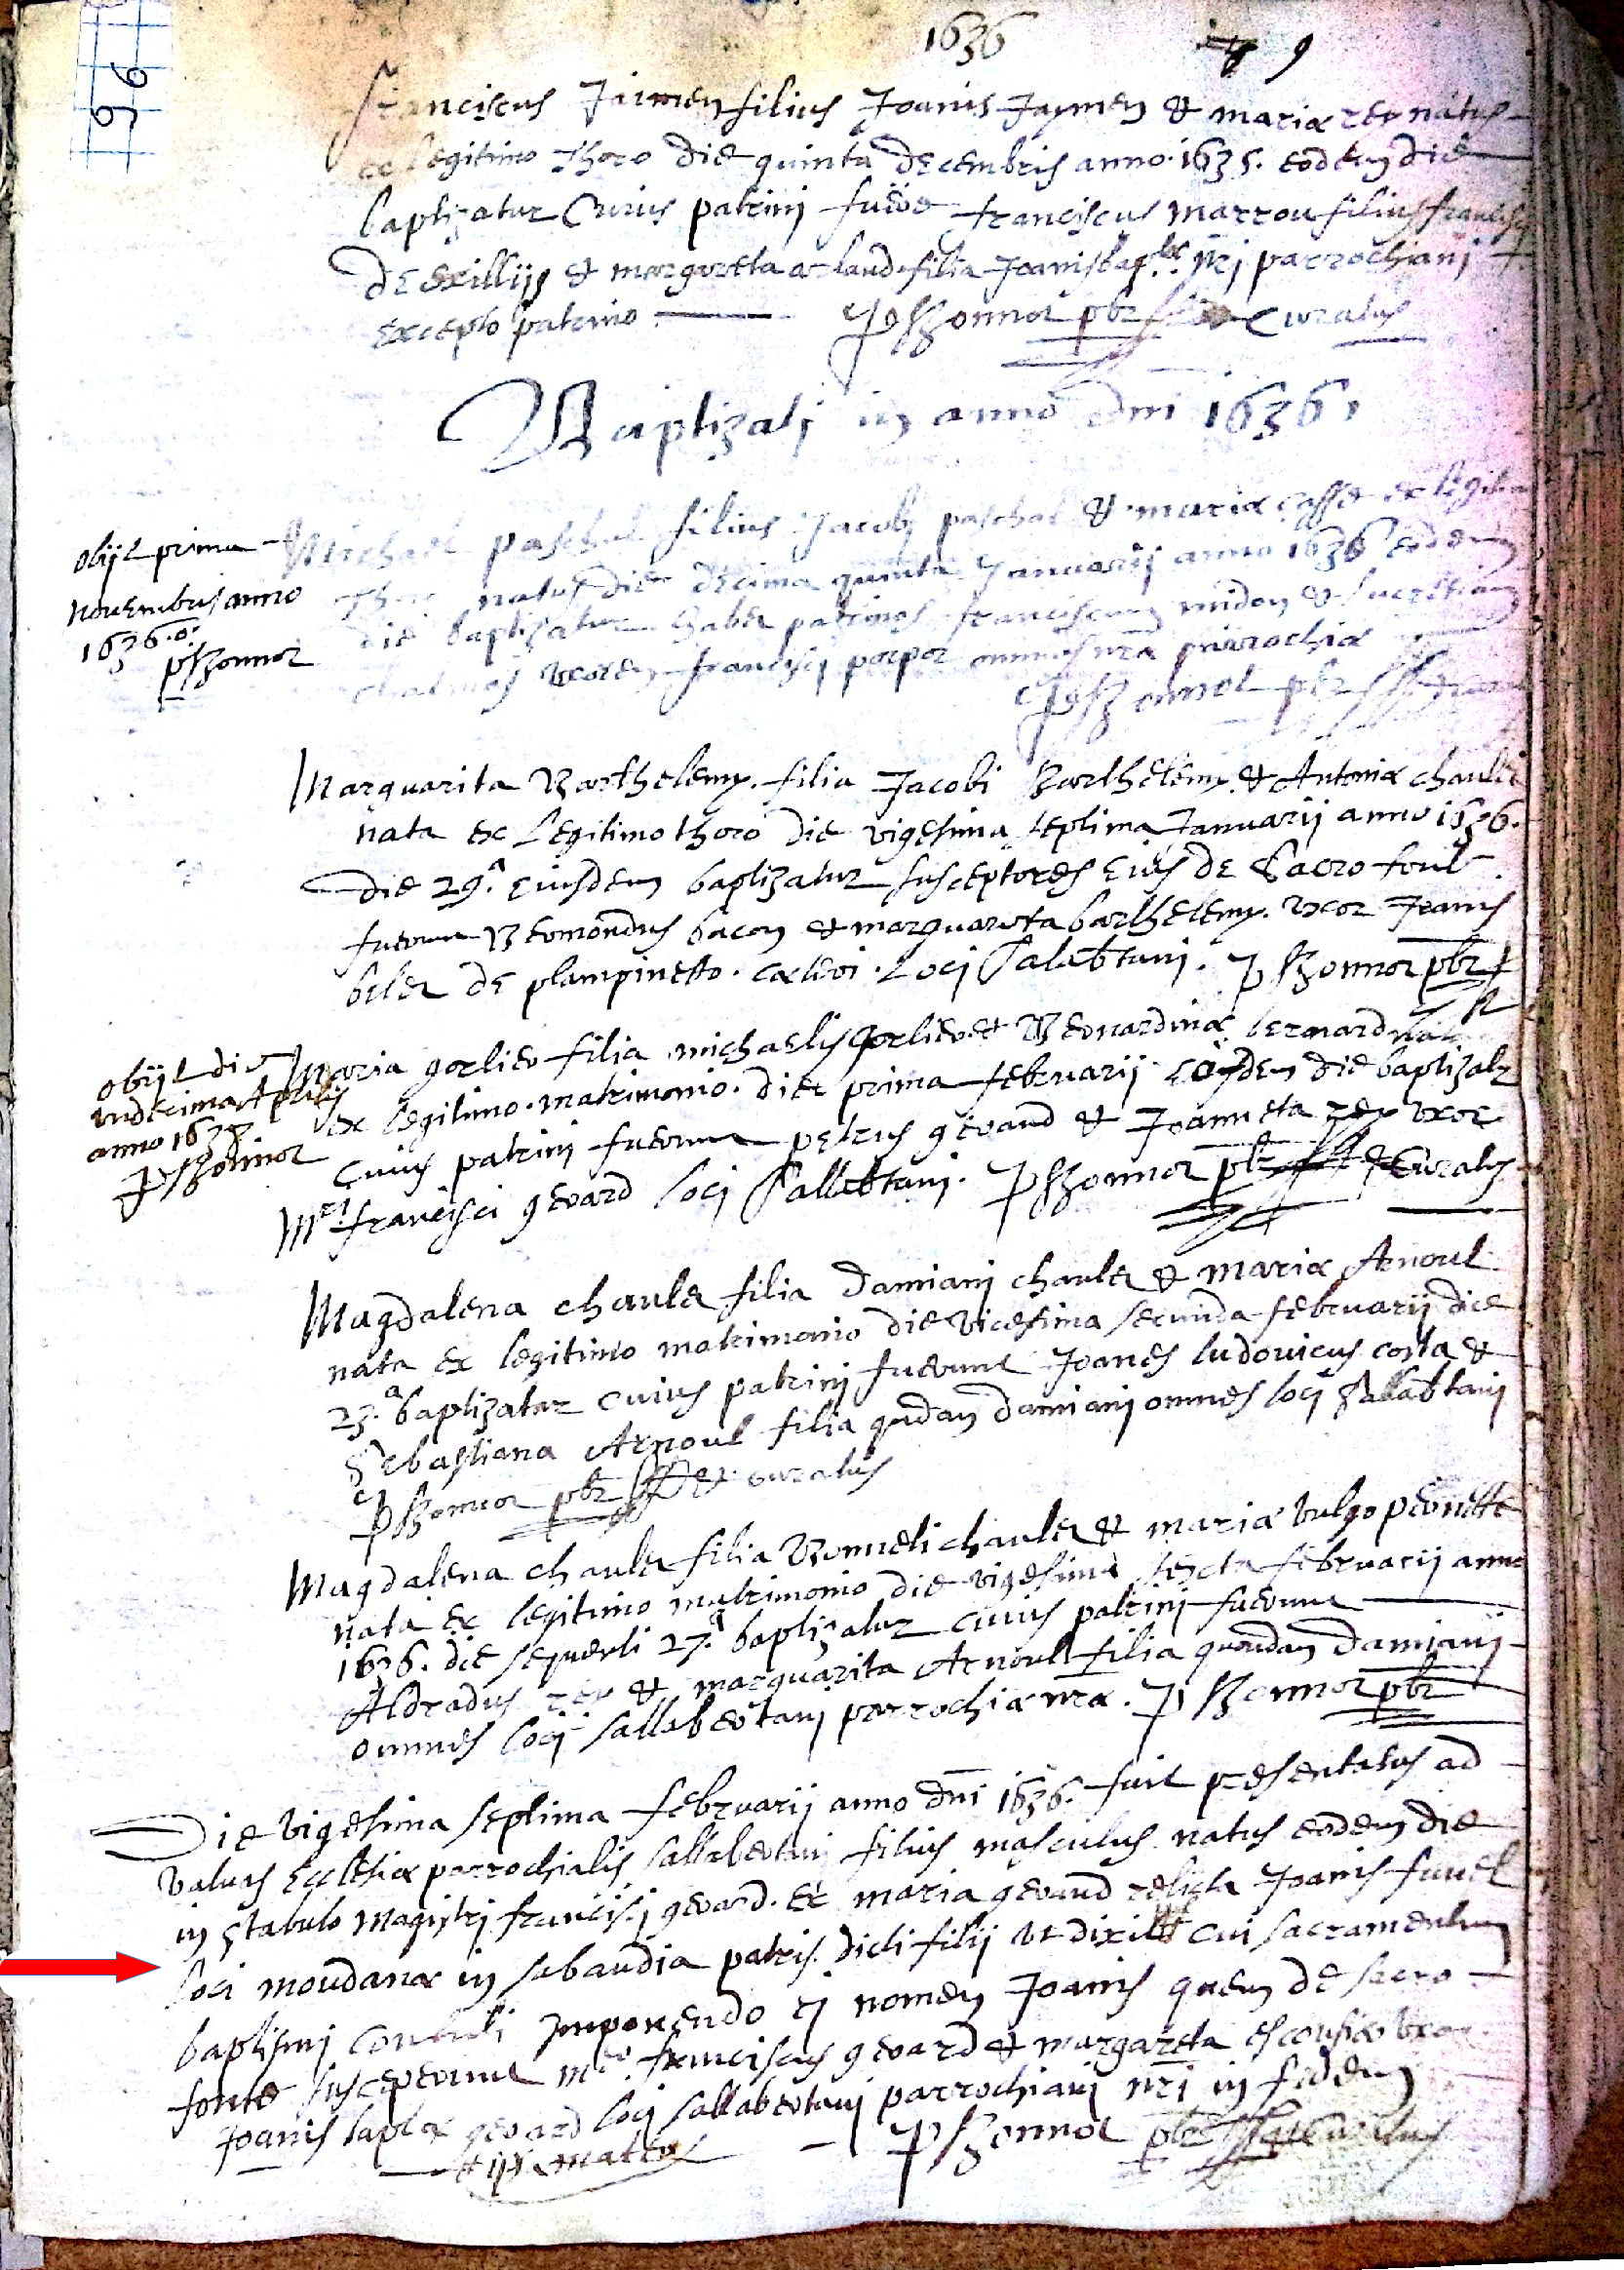 1636
9
96
Franciscus Jaimen filius Joanis Jaymen & mariæ rey natus
ex legitimo thoro die quinta decembris anno 1635. eodem die
baptizatur Cuius patrini fuere franciscus marrou filius francisci
de exillijs & margareta arlaud filia Joanis bap.tæ nri parrochiani
excepto patrino P Bonnot pbr Curatus
Baptizati in anno dni 1636.
obijt prima
novembris anno
1636.
P Bonnot
Michael paschal filius Jacobi paschal & mariæ casse ex legitimo
thoro natus die decima quinta Januarij anno 1636 eodem
die baptizatur habet patrinos franciscum midon & lucretiam
uxorem francisci porpor omnes nrã parrochiæ
P Bonnot pbr
Marguarita Barthelemy. filia Jacobi Barthelemy. & Antoniæ chaulet
nata ex legitimo thoro die vigesima septima Januarij anno 1636.
die 29.ª eiusdem baptizatur susceptores eius de sacro font
fuerunt Bermondus bacon & marguareta barthelemy. uxor Joanis
de plampinetto. loci Salabertani. P Bonnot pbr
obijt die
undecima Aprilis
anno 1637
P Bonnot
Maria gorlier filia michaelis gorlier & Bernardinæ bernard nata
ex legitimo. matrimonio. die prima februarij eodem die baptizatr
cuius patrini fuerunt petrus geraud & Joanneta rey uxor
Mri francisci gerard loci Sallabertani. P Bonnot pbr & Curatus
Magdalena chaulet filia Damiani chaulet & mariæ Arnoul
nata ex legitimo matrimonio die vicesima secunda februarij die
23.ª baptizatur cuius patrini fuerunt Joanes ludovicus costa &
Sebastiana Arnoul filia qudam damiani omnes loci Sallabertani
P Bonnot pbr & curatus
Magdalena chaulet filia Bonneti chaulet & mariæ vulgo peronette
nata ex legitimo matrimonio die vigesima sexta februarij anno
1636. die sequenti 27.ª baptizatur cuius patrini fuerunt
Aldradus rey & marguarita Arnoul filia quondam damiani
omnes loci sallabertani parrochiæ nræ. P Bonnot pbr
Die vigesima septima februarij anno dni 1636. fuit presentatus ad
valvas Ecclesiæ parrochialis sallabertani filius masculus natus eodem die
in stabulo magistri francisci gerard. ex maria geraud relicta Joanis
loci moudanæ in sabaudia patris. dicti filij ut dixit cui sacramentum
baptismi contuli Imponendo ei nomen Joanis quem de sacro
fonte susceperunt mer. franciscus gerard & margareta uxor
Joanis baptæ gerard loci sallabertani parrochiani nri in fidem
P Bonnot pbr & curatus